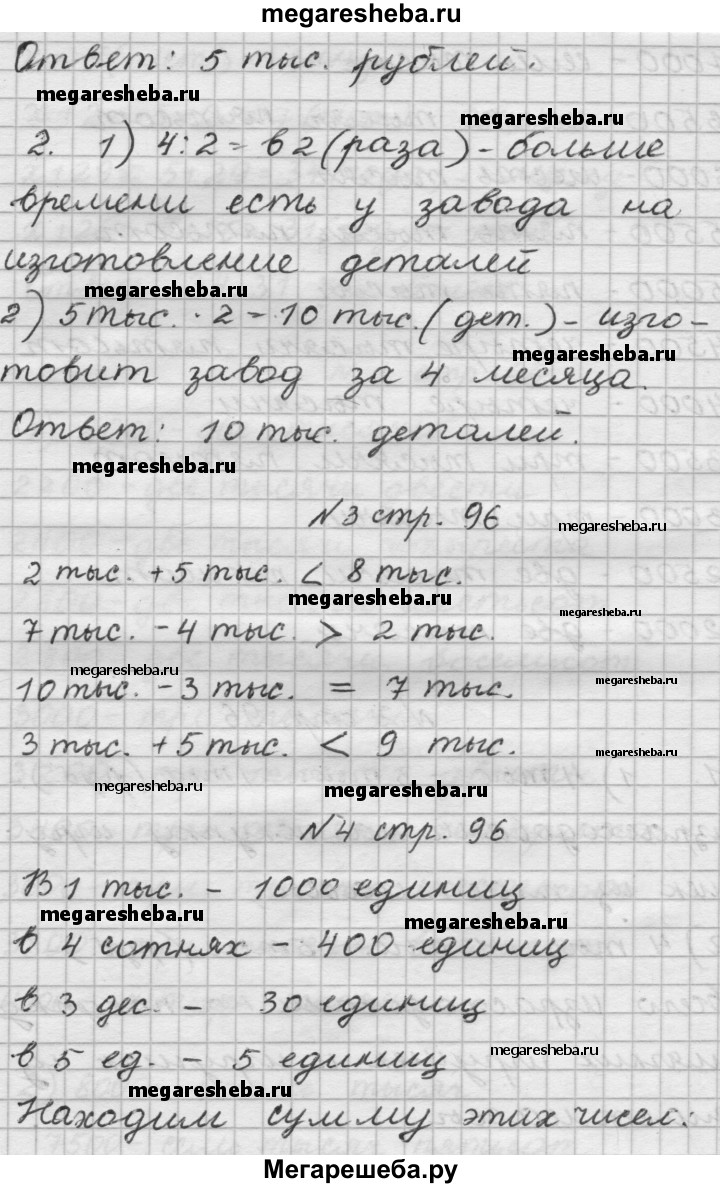 megaresheba.ru
Ответ: 5 тыс. рублей.
megaresheba.ru
megaresheba.ru
2. 1) 4:2 = в 2 (раза) - больше
времени есть у завода на
изготовление деталей
megaresheba.ru
2) 5 тыс. · 2 = 10 тыс. (дет.) - изго-
megaresheba.ru
товит завод за 4 месяца.
Ответ: 10 тыс. деталей.
megaresheba.ru
№3 стр. 96
megaresheba.ru
2 тыс. + 5 тыс. < 8 тыс.
megaresheba.ru
megaresheba.ru
7 тыс. - 4 тыс. > 2 тыс.
megaresheba.ru
megaresheba.ru
10 тыс. - 3 тыс. = 7 тыс.
3 тыс. + 5 тыс. < 9 тыс.
megaresheba.ru
megaresheba.ru
megaresheba.ru
№4 стр. 96
В 1 тыс. - 1000 единиц
megaresheba.ru
megaresheba.ru
в 4 сотнях - 400 единиц
в 3 дес. - 30 единиц
megaresheba.ru
в 5 ед. - 5 единиц
megaresheba.ru
Находим сумму этих чисел:
Мегарешеба.ру